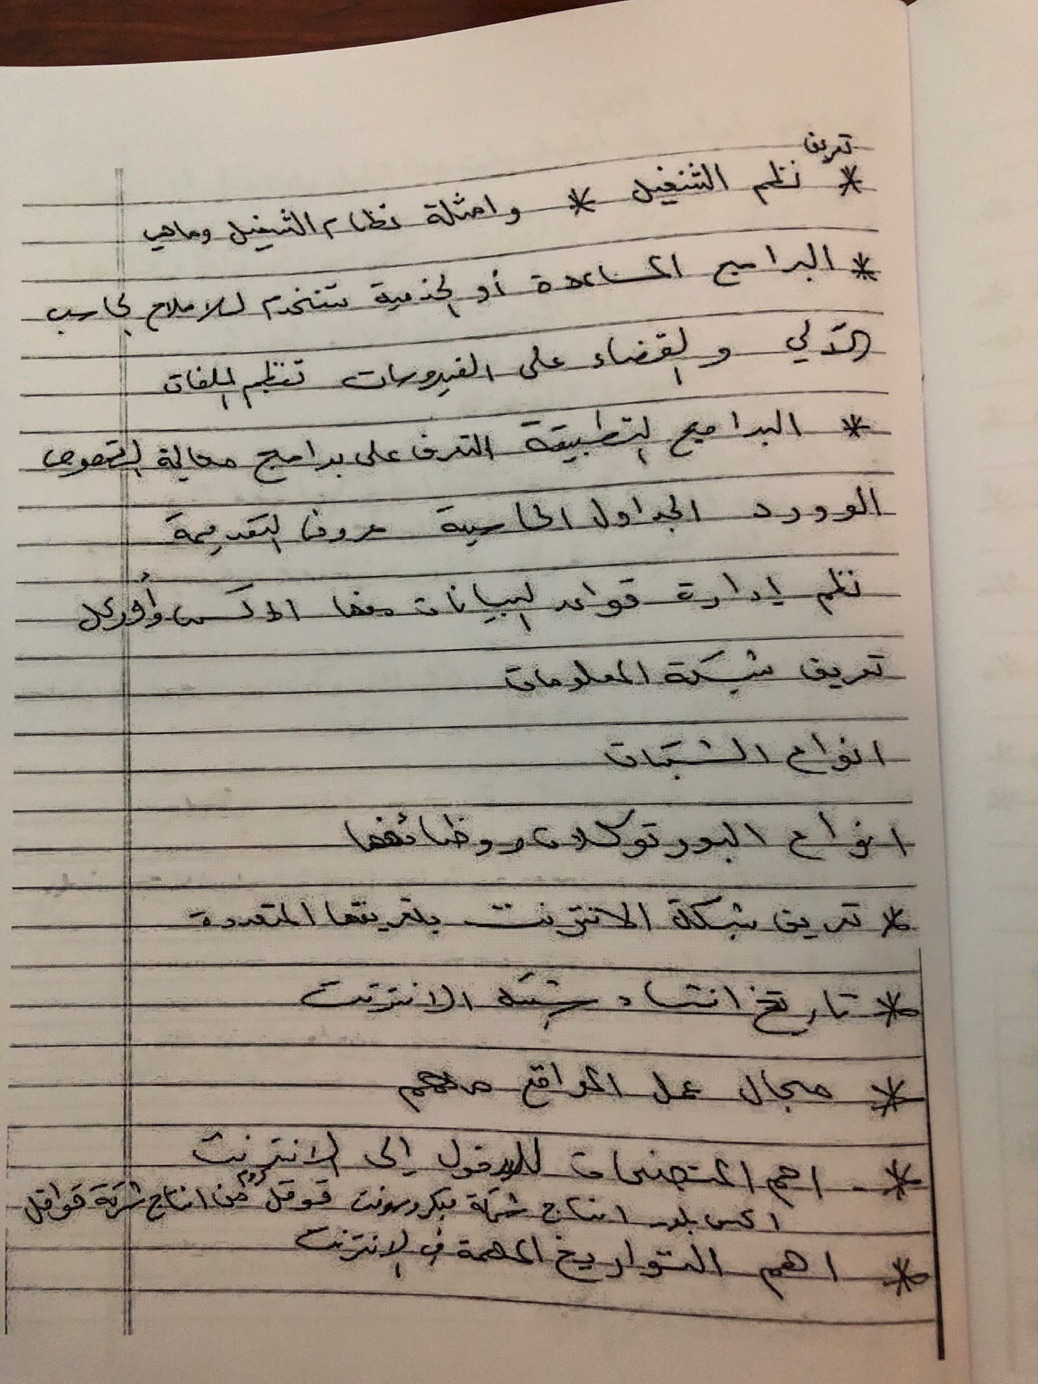 تعريف
* نظم التشغيل * وامثلة نظام التشغيل وماهي
* البرامج المساعدة أو الخدمية تستخدم للاصلاح الحاسب
الآلي والقضاء على الفيروسات تنظيم الملفات
* البرامج التطبيقية التعرف على برامج معالجة النصوص
الوورد الجداول الحاسبية عروض التقديمية
نظم إدارة قواعد البيانات منها الاكسس وأوركل
تعريف شبكة المعلومات
انواع الشبكات
انواع البورتوكلات ووظائفها
* تعريف شبكة الانترنت بتعريفها المتعددة
* تاريخ انشاء شبكة الانترنت
* مجال عمل المواقع مهم
* اهم المتصفحات للدخول إلى الانترنت
اكسبلور انتاج شركة ميكروسوفت قوقل كروم من انتاج شركة قوقل
* اهم التواريخ المهمة في الانترنت